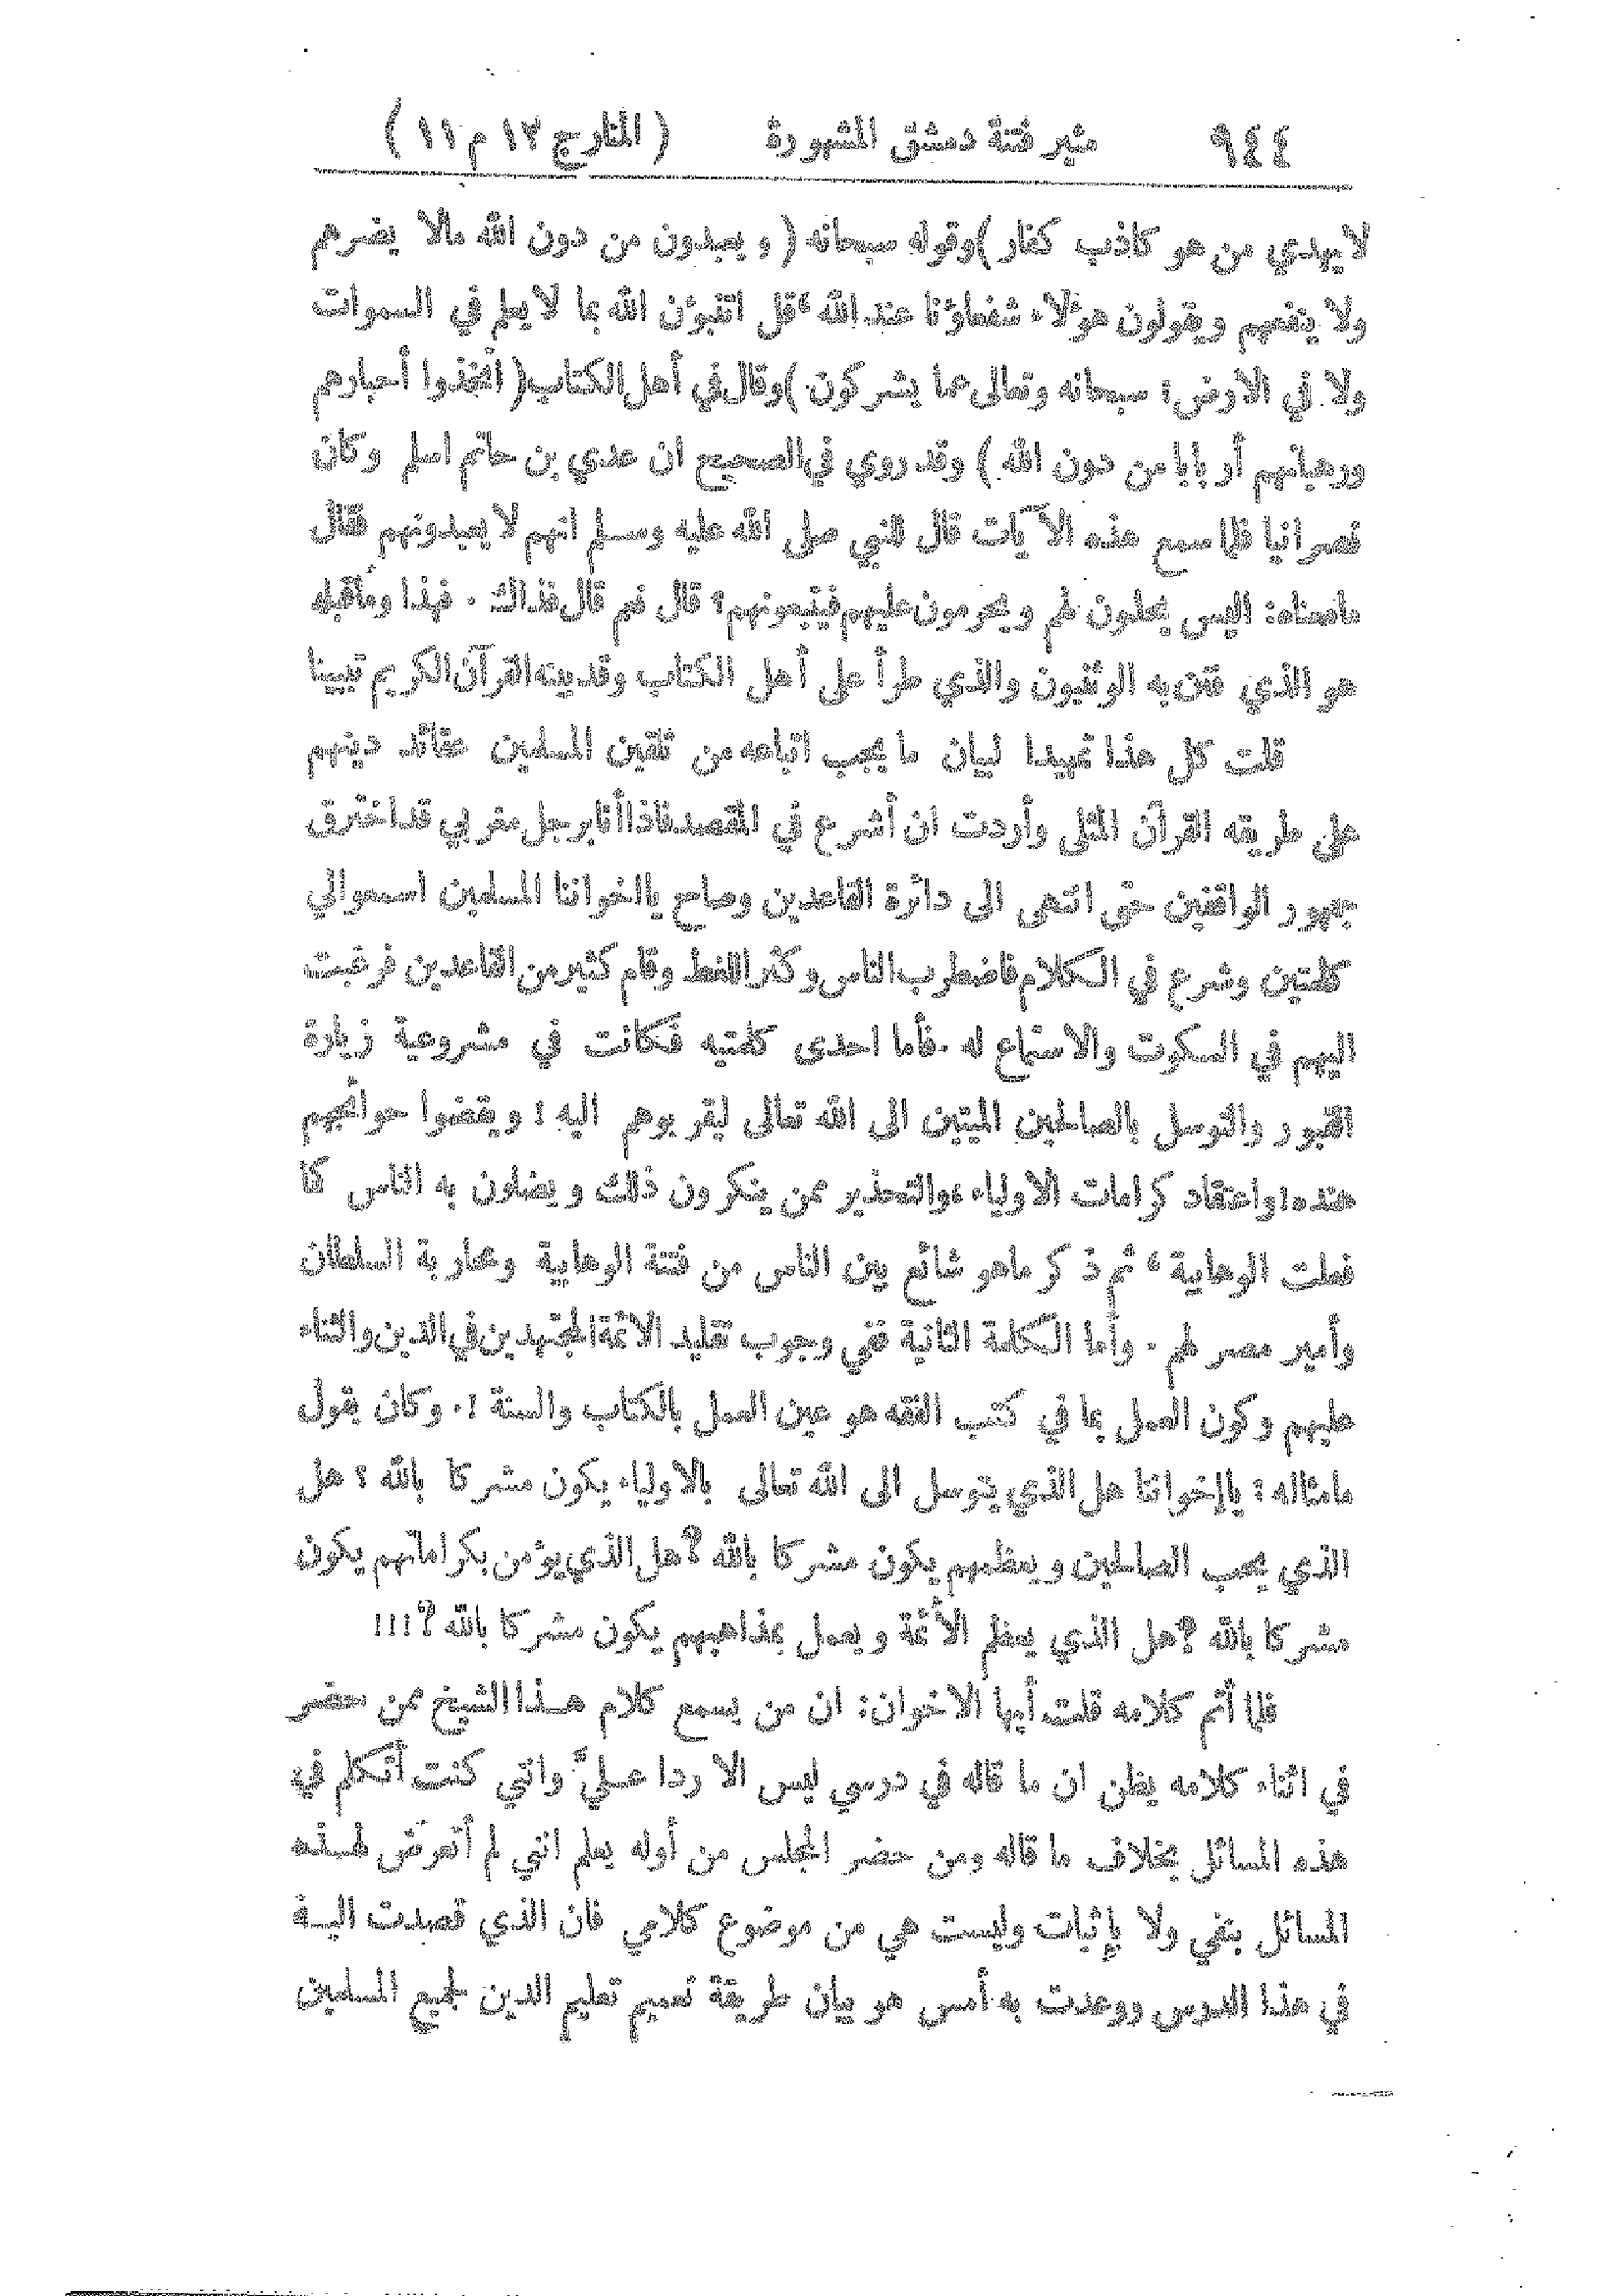 ٩٤٤ مثير فتنة دمشق المشهورة (المنارج ١٢ م ١١)
لا يهدي من هو كاذب كفار) وقوله سبحانه (ويعبدون من دون الله مالا يضرهم
ولا ينفعهم ويقولون هؤلاء شفعاؤنا عند الله، قل اتنبؤن الله بما لا يعلم في السموات
ولا في الارض؛ سبحانه وتعالى عما يشركون) وقال في أهل الكتاب (اتخذوا أحبارهم
ورهبانهم أربابا من دون الله) وقد روي في الصحيح ان عدي بن حاتم اسلم وكان
نصرانيا فلما سمع هذه الآيات قال للنبي صلى الله عليه وسلم انهم لا يعبدونهم فقال
مامعناه: اليس يحلون لهم ويحرمون عليهم فيتبعونهم؟ قال نعم قال فذاك. فهذا وماقبله
هو الذي فتن به الوثنيون والذي طرأ على أهل الكتاب وقد بينه القرآن الكريم تبيينا
قلت كل هذا تمهيدا لبيان ما يجب اتباعه من تلقين المسلمين عقائد دينهم
على طريقه القرآن المثلى وأردت ان أشرع في المقصد فاذا أنا برجل مغربي قد اخترق
جمهور الواقفين حتى انتهى الى دائرة القاعدين وصاح يااخواننا المسلمين اسمعوالي
كلمتين وشرع في الكلام فاضطرب الناس وكثر اللغط وقام كثير من القاعدين فرغبت
اليهم في السكوت والاستماع له. فأما احدى كلمتيه فكانت في مشروعية زيارة
القبور والتوسل بالصالحين الميتين الى الله تعالى ليقربوهم اليه! ويقضوا حوائجهم
عنده! واعتقاد كرامات الاولياء، والتحذير ممن ينكرون ذلك ويضلون به الناس كما
فعلت الوهابية، ثم ذكر ماهو شائع بين الناس من فتنة الوهابية ومحاربة السلطان
وأمير مصر لهم. وأما الكلمة الثانية ففي وجوب تقليد الائمة المجتهدين في الدين والثناء
عليهم وكون العمل بما في كتب الفقه هو عين العمل بالكتاب والسنة!. وكان يقول
مامثاله: ياإخواننا هل الذي يتوسل الى الله تعالى بالاولياء يكون مشركا بالله؟ هل
الذي يحب الصالحين ويعظمهم يكون مشركا بالله؟ هل الذي يؤمن بكراماتهم يكون
مشركا بالله؟ هل الذي يعظم الأئمة ويعمل بمذاهبهم يكون مشركا بالله؟!!!
فلما أتم كلامه قلت أيها الاخوان: ان من يسمع كلام هـذا الشيخ ممن حضر
في اثناء كلامه يظن ان ما قاله في درسي ليس الا ردا عـليَّ وانني كنت أتكلم في
هذه المسائل بخلاف ما قاله ومن حضر المجلس من أوله يعلم انني لم أتعرض لهـذه
المسائل بنفي ولا بإثبات وليست هي من موضوع كلامي فان الذي قصدت اليـه
في هذا الدرس ووعدت به أمس هو بيان طريقة تعميم تعليم الدين لجميع المسلمين